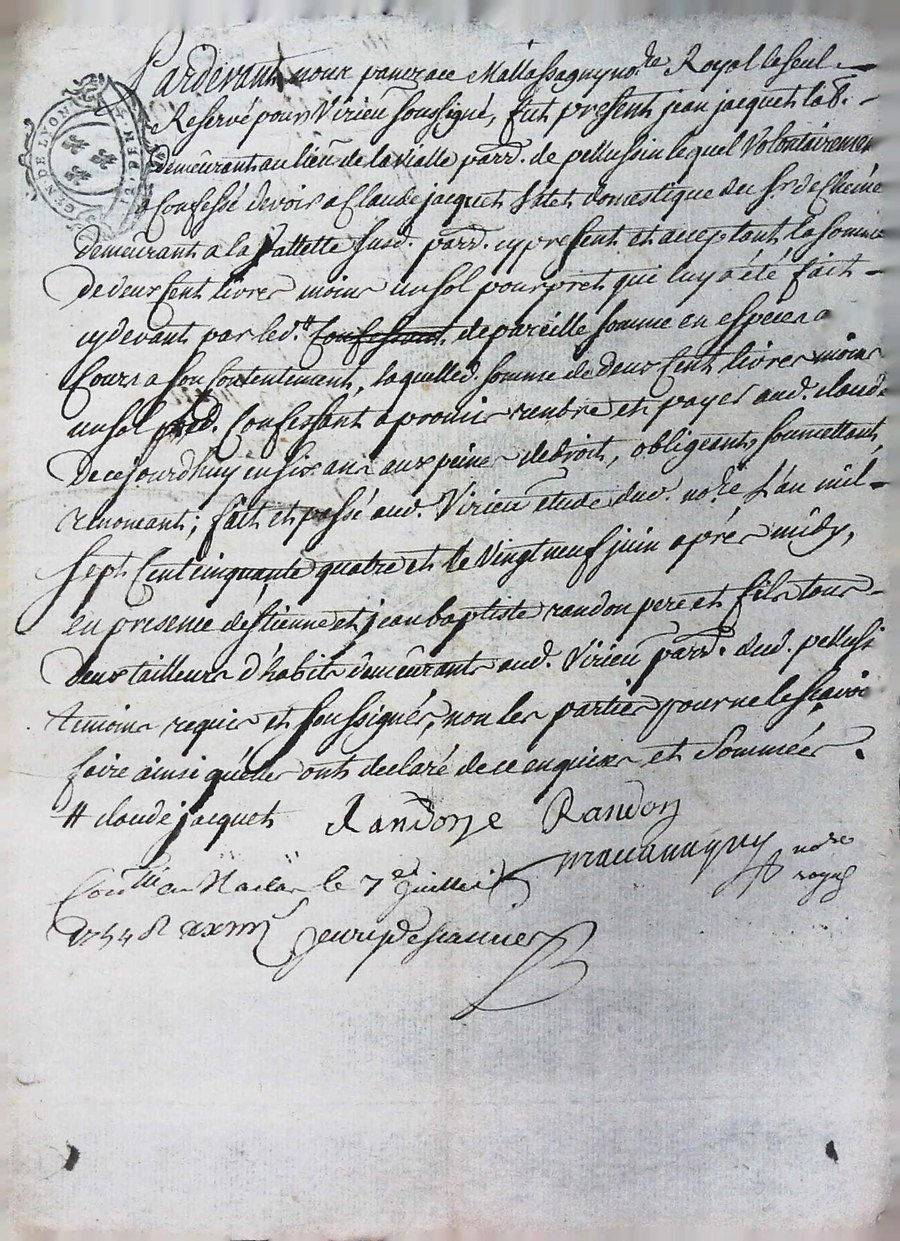 Pardevant nous pancrace Mallassagny no.re Royal le seul
Reservé pour Virieu soussigné, fut present jean jacquet lab.
demeurant au lieu de la Vialle parr. de pellussin lequel Volontairement
a Confessé devoir a Claude jacquet domestique du Sr.
demeurant a la Vallette susd. parr. cy present et acceptant la somme
de deux Cent livres moins un sol pour pret qui luy a été fait
cy devant par led. # de pareille somme en especes a
Cours a son contentement, laquelled. somme de deux Cent livres moins
un sol led. Confessant a promis rendre et payer aud. claude
De ce jourdhuy en six ans aux peines de droit, obligeant, soumettant,
renonçant; fait et passé aud. Virieu étude dud. no.re L'an mil
sept Cent cinquante quatre et le vingt neuf juin aprés midy,
en presence d'estienne et jean baptiste randon pere et fils tous
deux tailleurs d'habits demeurants aud. Virieu parr. dud. pellussi
temoins requis et soussignés, non les parties pour ne le sçavoir
faire ainsi qu'elles ont declaré de ce enquises et sommées.
# claude jacquet Randon pe Randon
Mallassagny no.re royal
Con.llé a le 7e Juillet
1754
GEN DE LYON